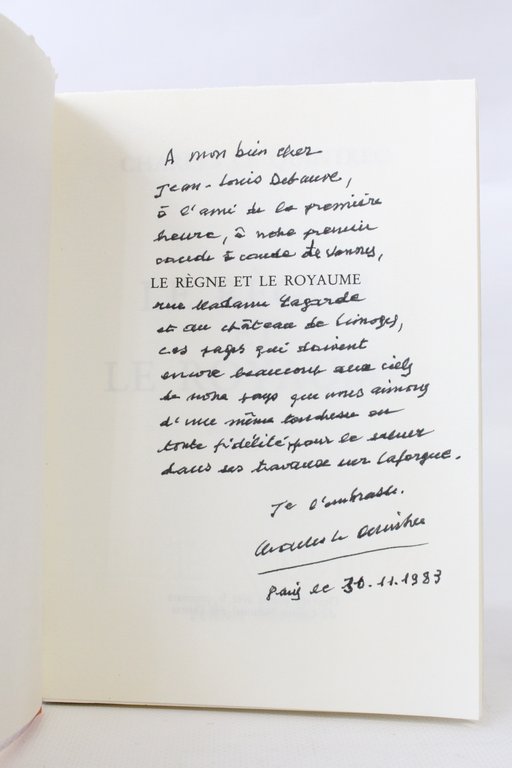 A mon bien cher
Jean-Louis Debauve,
à l'ami de la première
heure, à notre premier
coude à coude de Vannes,
LE RÈGNE ET LE ROYAUME
rue Madame Lagarde
et au château de Limoges,
ces pages qui doivent
encore beaucoup aux ciels
de notre pays que nous aimons
d'une même tendresse en
toute fidélité pour le
dans ses travaux sur Laforgue.
Je l'embrasse.
Charles le Quintrec
Paris le 30.11.1983